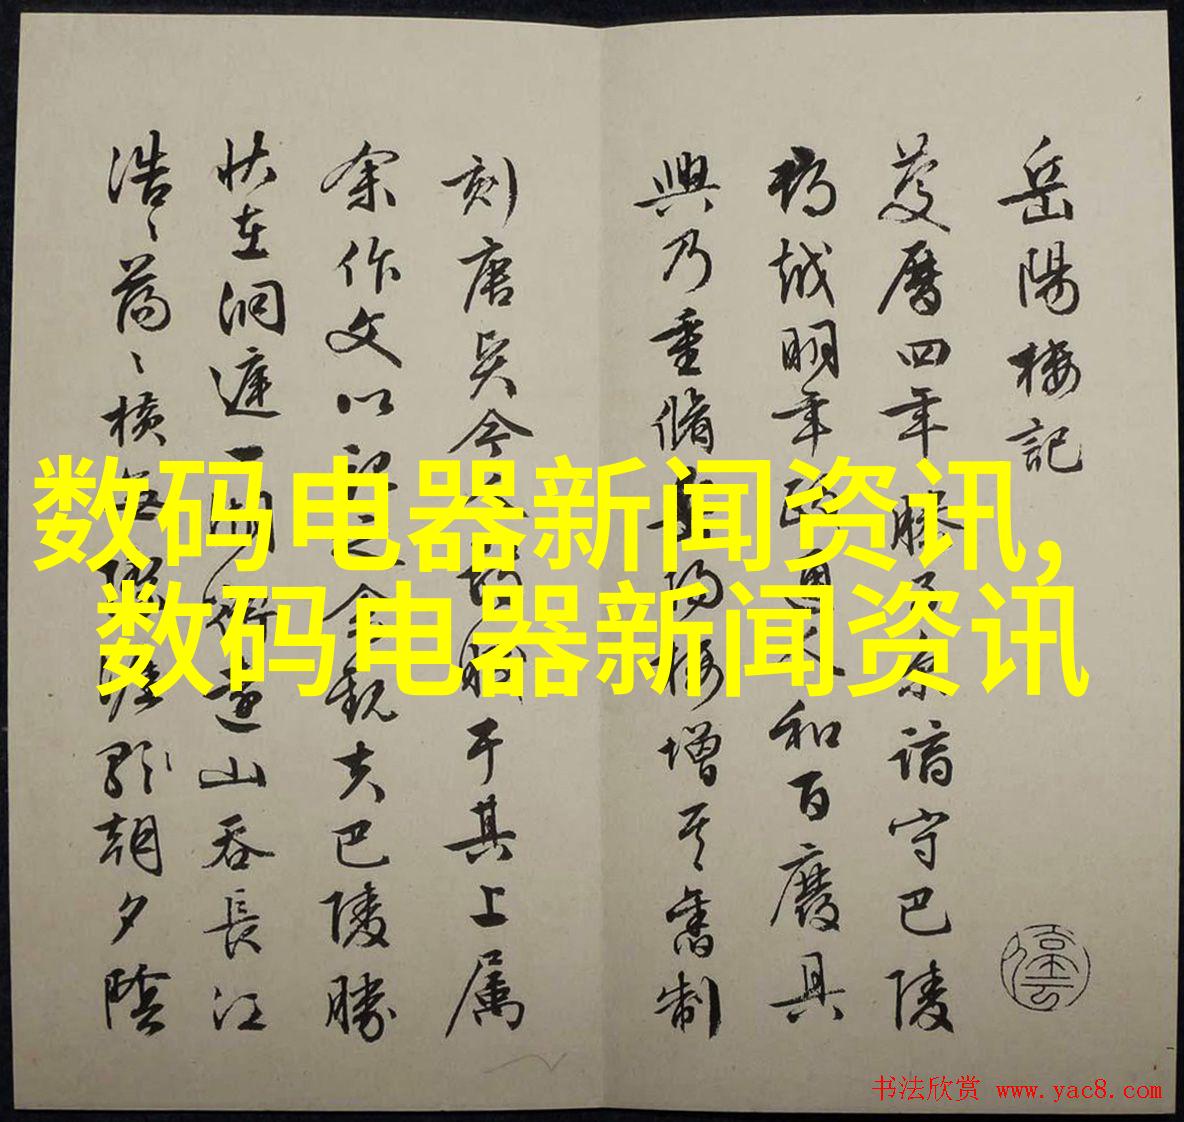 岳陽樓記
慶曆四年滕子京謫守巴陵
郡越明年政通人和百廢具
興乃重脩岳陽樓增其舊制
刻唐賢今人詩賦于其上屬
余作文以記之余觀夫巴陵勝
狀在洞庭一湖銜遠山吞長江
浩〻蕩〻橫無際涯朝夕陰
数码电器新闻资讯,
数码电器新闻资讯
书法欣赏 www.yac8.com